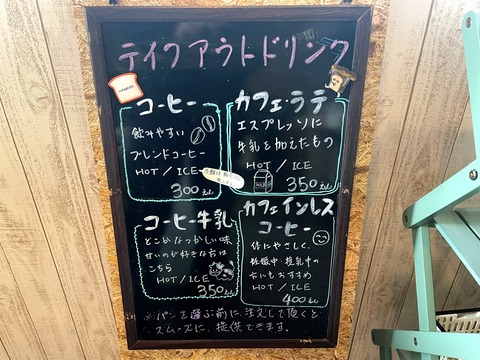 テイクアウトドリンク
コーヒー
飲みやすい
ブレンドコーヒー
HOT / ICE
300えん
カフェ・ラテ
エスプレッソに
牛乳を加えたもの
HOT / ICE
350えん
コーヒー牛乳
どこかなつかしい味
甘いのが好きな方は
こちら
HOT / ICE
350えん
カフェインレス
コーヒー
体にやさしく、
妊娠中・授乳中の
方にもおすすめ
HOT / ICE
400えん
※パンを選ぶ前に、注文して頂くと
スムーズに、提供できます。